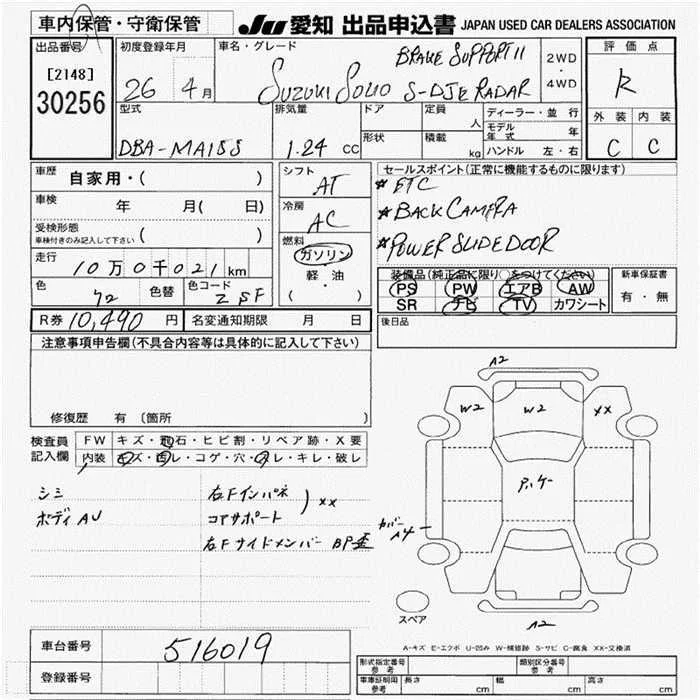 車内保管・守衛保管
JU 愛知 出品申込書 JAPAN USED CAR DEALERS ASSOCIATION
出品番号
[2148]
30256
初度登録年月
26年 4月
車名・グレード
BRAKE SUPPORT II
SUZUKI SOLIO S-DJE RADAR
2WD
・
4WD
評価点
R
外装 内装
C C
型式
DBA-MA15S
排気量
1.24 cc
ドア
形状
定員
人
積載
kg
ディーラー・並行
モデル年式 年
ハンドル 左・右
車歴
自家用・( )
車検
年 月( 日)
受検形態
車検付きのみ記入して下さい ( )
走行
10万0千021km
色
色替
色コード
ZSF
R券 10,490 円
名変通知期限 月 日
シフト
AT
冷房
AC
燃料
ガソリン
軽・油
( ・ )
セールスポイント(正常に機能するものに限ります)
*ETC
*BACK CAMERA
*POWER SLIDE DOOR
装備品(純正品に限り○をつけてください)
PS PW エアB AW
SR ナビ TV カワシート
新車保証書
有・無
後日品
注意事項申告欄(不具合内容等は具体的に記入して下さい)
修復歴 有 (箇所
検査員
記入欄
FW キズ・飛石・ヒビ割・リペア跡・X要
内装 キズ・汚レ・コゲ・穴・スレ・キレ・破レ
シミ
ボディAU
右Fインパネ
コアサポート
) XX
右Fサイドメンバー BP歪
A2
W2 W2 XX
カバー
A4
A2
スペア
A-キズ E-エクボ U-凹み W-補修跡 S-サビ C-腐食 XX-交換済
車台番号
516019
登録番号
形式指定番号
参考
類別区分番号
参考
車庫証明用
参考
長さ cm
幅 cm
高さ cm